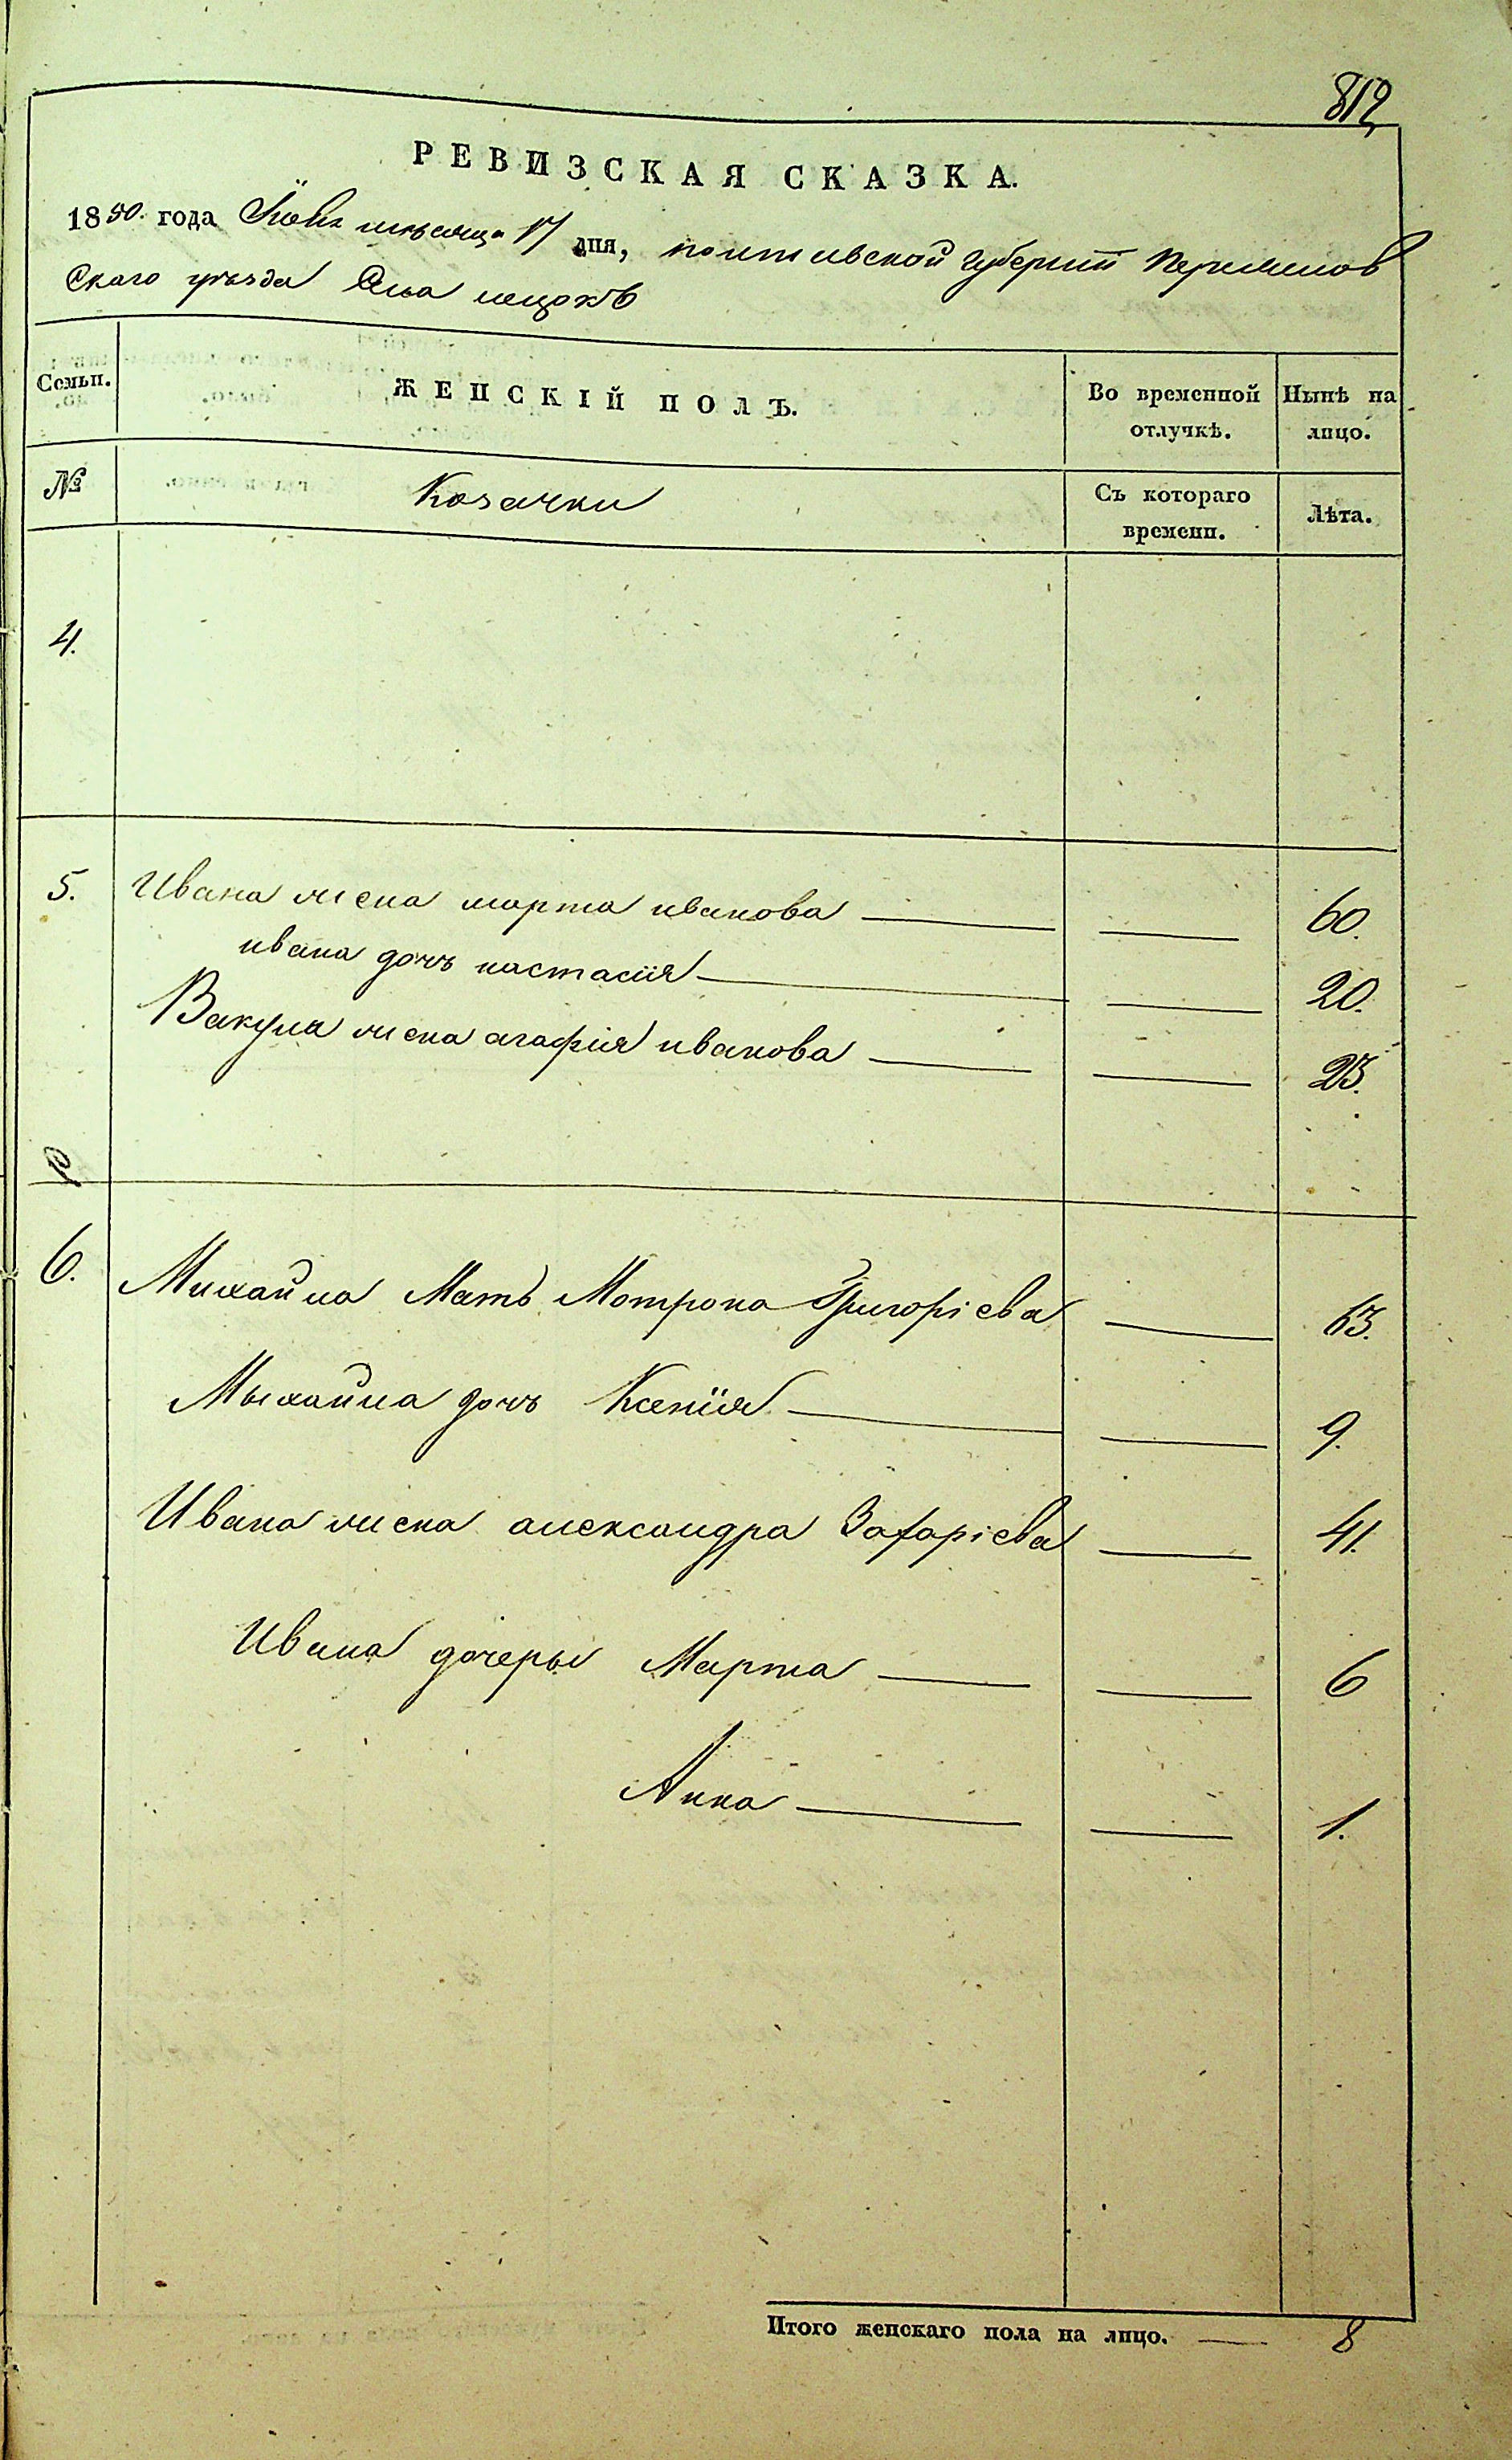 812
РЕВИЗСКАЯ СКАЗКА.
1850. года Июня мѣсяца 17 дня, полтавской губернии
Скаго уѣзда Села
Семьи. ЖЕНСКІЙ ПОЛЪ. Во временной отлучкѣ. Нынѣ на лицо.
№ Козачки Съ котораго времени. Лѣта.
4.
5. Ивана жена марта иванова — — 60.
ивана дочь настасія — — 20.
Вакула жена агафія иванова — — 23.
6. Михайла Мать Мотрона Григоріева — 63.
Мыхайла дочь Ксенія — — 9.
Ивана жена александра Захаріева — 41.
Ивана дочеры Марта — — 6
Анна — — 1.
Итого женскаго пола на лицо. — 8